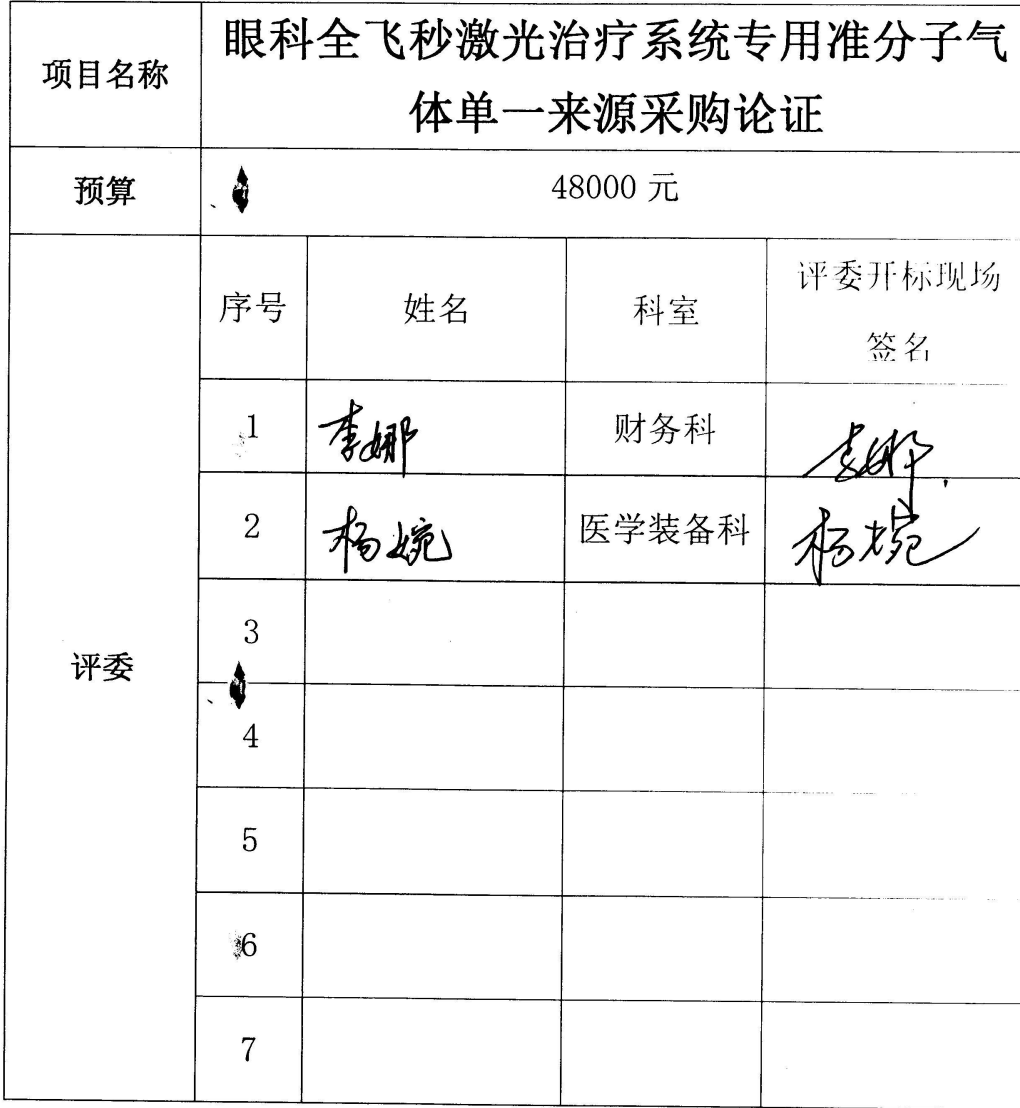 项目名称
眼科全飞秒激光治疗系统专用准分子气
体单一来源采购论证
预算
48000 元
评委
序号
姓名
科室
评委开标现场
签名
1
李娜
财务科
李娜
2
杨婉
医学装备科
杨婉
3
4
5
6
7